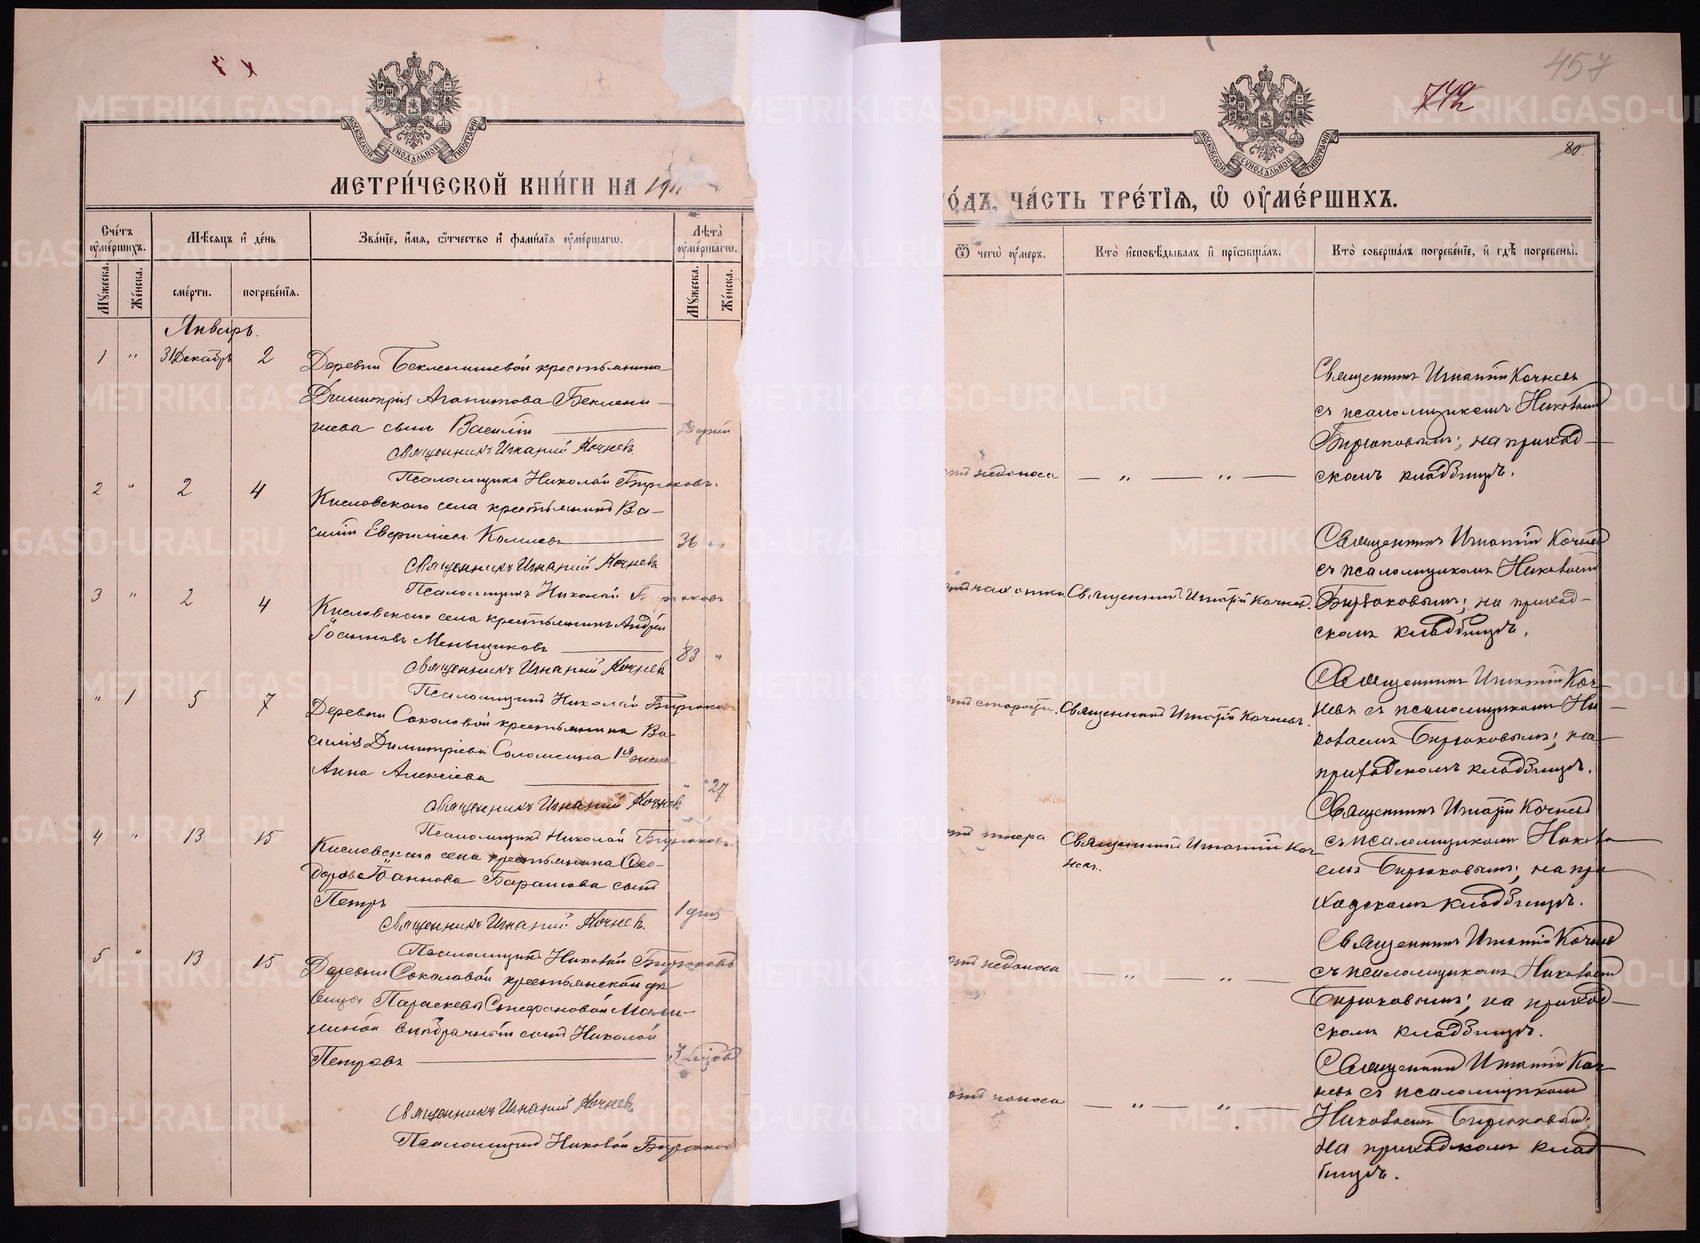 457
749
80.
МЕТРИ́ЧЕСКОЙ КНИ́ГИ НА 191
ГО́ДЪ, ЧА́СТЬ ТРЕ́ТІѦ, Ѽ ОУ҆МЕ́РШИХЪ.
Сче́тъ оу҆ме́ршихъ.
Мѣ́сѧцъ и҆ де́нь
Зва́нїе, и҆́мѧ, ѻ҆́тчество и҆ фами́лїѧ оу҆ме́ршагѡ.
Лѣ́та оу҆ме́ршагѡ.
Ѿ чегѡ̀ оу҆́меръ.
Кто̀ и҆сповѣ́дывалъ и҆ прїѡбща́лъ.
Кто̀ соверша́лъ погребе́нїе, и҆ гдѣ̀ погребены̀.
Мꙋ́жеска.
Же́нска.
сме́рти.
погребе́нїѧ.
Мꙋ́жеска.
Же́нска.
Январь.
1 " 31 Декабр 2
Деревни Бекленищевой крестьянина
Димитрія Агапитова Беклени-
щева сынъ Василій
дней
Священникъ Игнатій Кочневъ
Псаломщикъ Николай Бирюковъ.
отъ недоноса — " — " —
Священникъ Игнатій Кочневъ
съ псаломщикомъ Николаемъ
Бирюковымъ; на приход-
скомъ кладбищѣ.
2 " 2 4
Кисловскаго села крестьянинъ Ва-
силій
36 "
Священникъ Игнатій Кочневъ
Псаломщикъ Николай Бирюковъ
отъ чахотки Священникъ Игнатій Кочневъ.
Священникъ Игнатій Кочневъ
съ псаломщикомъ Николаемъ
Бирюковымъ; на приход-
скомъ кладбищѣ.
3 " 2 4
Кисловскаго села крестьянинъ Андрей
Іоанновъ Меньщиковъ
83 "
Священникъ Игнатій Кочневъ
Псаломщикъ Николай Бирюковъ
отъ старости. Священникъ Игнатій Кочневъ.
Священникъ Игнатій Коч-
невъ съ псаломщикомъ Ни-
колаемъ Бирюковымъ; на
приходскомъ кладбищѣ.
" 1 5 7
Деревни Соколовой крестьянина Ва-
силія Димитріева Соломеина 1ая жена
Анна Алексіева
" 27
Священникъ Игнатій Кочневъ
Псаломщикъ Николай Бирюковъ.
отъ тифа Священникъ Игнатій Коч-
невъ.
Священникъ Игнатій Кочневъ
съ псаломщикомъ Никола-
емъ Бирюковымъ; на при-
ходскомъ кладбищѣ.
4 " 13 15
Кисловскаго села крестьянина Ѳео-
дора Іоаннова Барашова сынъ
Петръ
1 дня
Священникъ Игнатій Кочневъ.
Псаломщикъ Николай Бирюковъ
отъ недоноса — " — " —
Священникъ Игнатій Кочневъ
съ псаломщикомъ Николаемъ
Бирюковымъ; на приход-
скомъ кладбищѣ.
5 " 13 15
Деревни Соколовой крестьянской дѣ-
вицы Параскевы Стефановой
внѣбрачный сынъ Николай
Петровъ
Священникъ Игнатій Кочневъ
Псаломщикъ Николай Бирюковъ
отъ поноса — " — " —
Священникъ Игнатій Коч-
невъ съ псаломщикомъ
Николаемъ Бирюковымъ;
на приходскомъ клад-
бищѣ.
METRIKI.GASO-URAL.RU